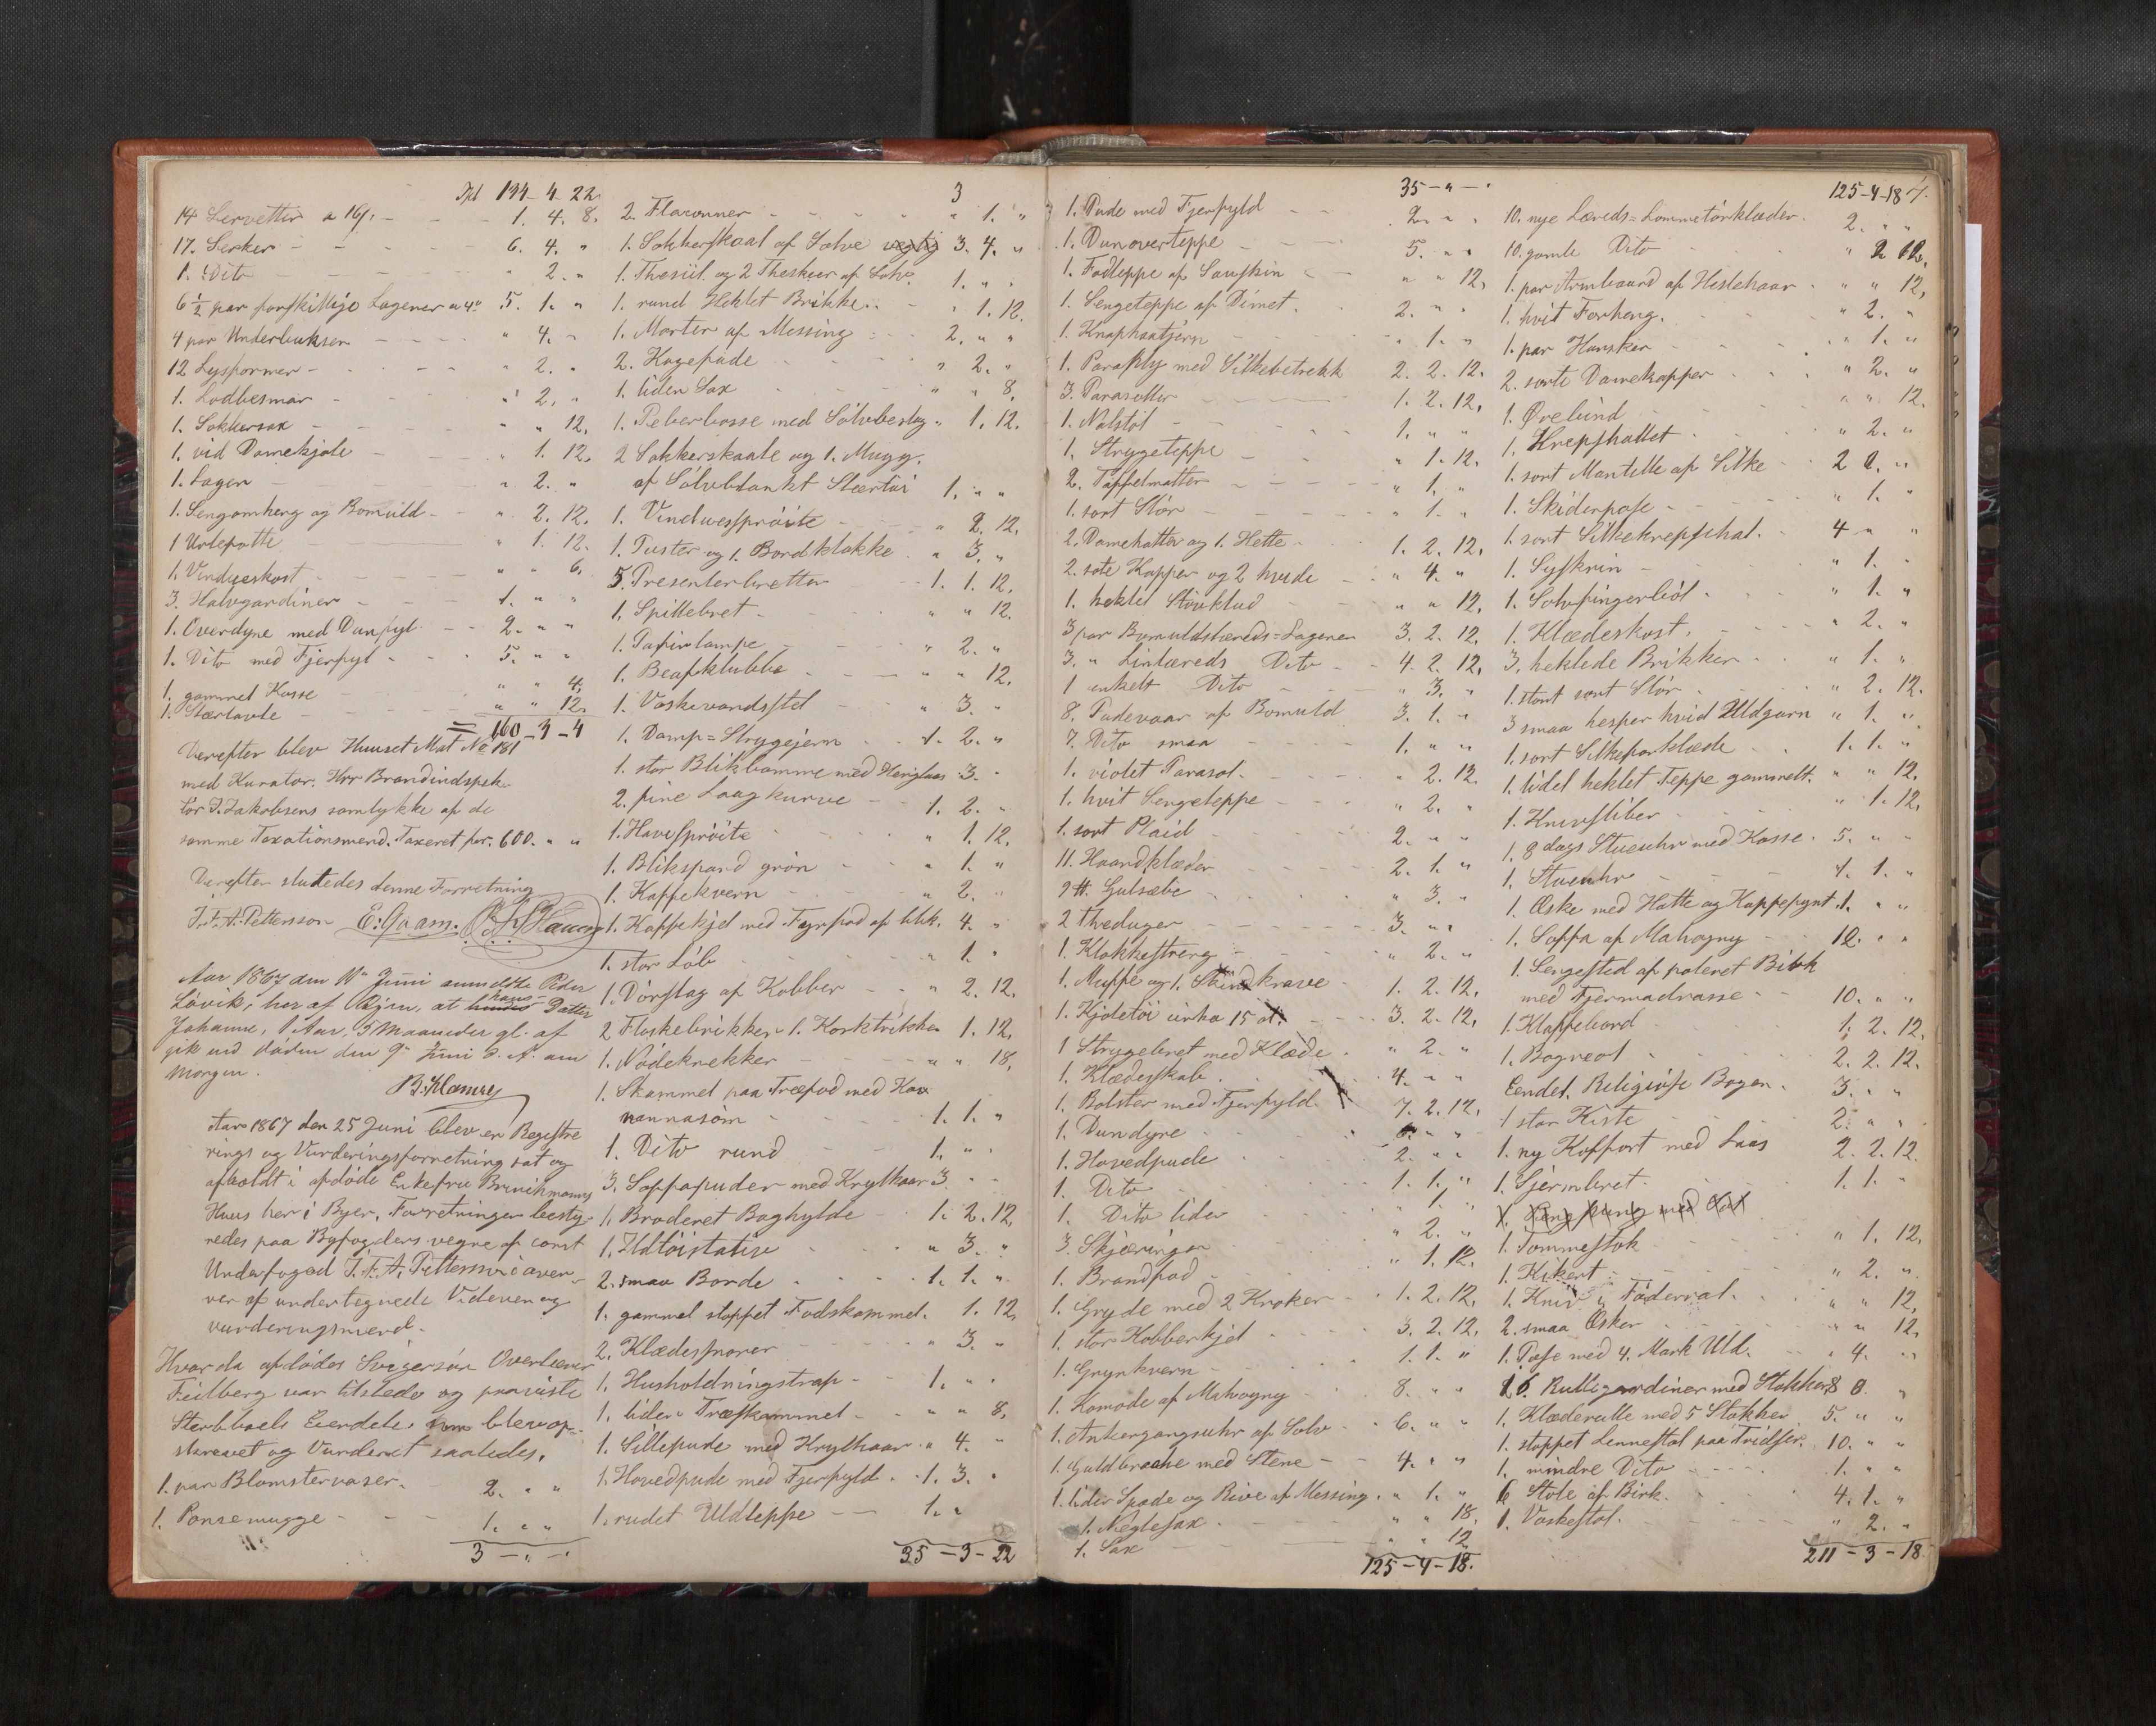 Spd 144 - 4 22.
14 Servetter a 16ſ. - 1. 4. 8.
17. Serker - 6. 4. "
1. Dito - " 2. "
6 1/2 par forskillige Lagener a 4" 5. 1. "
4 par Underbukser - " 4. "
12 Lysformer - " 2. "
1. Lodbesmar - " 2. "
1. Sokkersax - " " 12.
1. vid Damekjole - " 1. 12.
1. Lagen - " 2. "
1. Sengomheng og Bomuld - " 2. 12.
1 Urtepotte - " 1. 12.
1. Vindueskost - " " 6.
3. Halvgardiner - 1. " "
1. Overdyne med Dunfyl - 2. " "
1. Dito med Fjerfyl - 5. " "
1. gammel Kasse - " " 4.
1. Stærtavle - " " 12.
= 160 - 3 - 4
Derefter blev Huuset Mat No 181
med Kurator. Hrr Brandindspek-
tör P. Jakobsens samtykke af de
samme Taxationsmend. Taxeret for. 600. " "
Derefter sluttedes denne Forretning
J. F. A. Pettersson E. Gaam.
Aar 1867 den 11te Juni anmeldte Peder
Lövik, her af Byen, at hans Datter
Johanne, 1 Aar, 5 Maaneder gl. af
gik ved döden den 9de Juni d. A. om
Morgen.
B. Klamer
Aar 1867 den 25 Juni blev en Regestre
rings og Vurderingsforretning sat og
afholdt i afdöde Enkefru Brinchmanns
Huus her i Byen, Forretningen besty-
redes paa Byfogdens vegne af const
Underfoged J. F. A. Pettersson i over-
ver af undertegnede Vidner og
vurderingsmend.
Hvor da afdödes Svigersön Overlærer
Feilberg var tilstede og paaviste
Sterbboets Eiendele, som blev op-
skrevet og Vurderet saaledes.
1. par Blomstervaser. - 2. " "
1. Ponsemugge - 1. " "
3 - " - "
3
2. Flaconner - " 1. "
1. Sokkerskaal af Sølve vegtig 3. 4. "
1. Thesiil og 2 Theskeer af Sölv. 1. " "
1. rund Heklet Brikke. " 1. 12.
1. Morter af Messing - 2. " "
2. Kagefade - " 2. "
1. liden Sax - " " 8.
1. Peberbosse med Sölvbeslag " 1. 12.
2 Sokkerskaale og 1. Mugg.
af Sölvblankt Steertöi 1. " "
1. Vinduessprøite - " 2. 12.
1. Puster og 1. Bordklokke " 3. "
5. Presenterbretter - 1. 1. 12.
1. Spillebret - " " 12.
1. Pafinlampe - " 2. "
1. Beafklubbe - " " 12.
1. Vaskevandsstel - " 3. "
1. Damp-Strygejern - 1. 2. "
1. stor Blikbomme med Henglaas 3. "
2. fine Laagkurve - 1. 2. "
1. Havesprøite - " 1. 12.
1. Blikspand grön - " 1. "
1. Kaffekvern - " 2. "
1. Kaffekjel med Fyrfad af blik. 4. "
1. stor Löb - " 1. "
1. Dörslag af Kobber - " 2. 12.
2 Flaskebrikker 1. Korktrekker 1. 12.
1. Nödeknekker " " 18.
1. Skammel paa Træfod med Kan
nannasöm - 1. 1. "
1. Dito rund - 1. " "
3. Soffapuder med Krylhaar 3. " "
1. Broderet Boghylde 1. 2. 12
1. Ildtöistativ " 3. "
2. smaa Borde - 1. 1. "
1. gammel stoppet Fodskammel. 1. 12.
2. Klædesnorer " 3. "
1. Husholdningstrap - 1. " "
1. liden Træskammel - " " 8.
1. Sillepude med Krylhaar " 4. "
1. Hovedpude med Fjerfyld - 1. 3. "
1. rudet Uldteppe - 1. "
35 - 3 - 22
35 - " - "
1. Pude med Fjerfyld - 2. " "
1. Dunoverteppe - 5. " "
1. Fodteppe af Saueskin " " 12.
1. Sengeteppe af Dimet. 2. " "
1. Knaphaatjern " 1. "
1. Paraply med Silkebetrekk 2. 2. 12.
3. Parasoller 1. 2. 12.
1. Natstol 1. " "
1. Strygeteppe " 1. 12.
2. Toffelmatter " 1. "
1. sort Slör " 1. "
2. Damehatter og 1. Hette 1. 2. 12.
2. sote Kapper og 2 hvide " 4. "
1. heklet Stövklud " " 12.
3 par Bomuldslæreds-Lagener 3. 2. 12.
3. " Linlæreds Dito - 4. 2. 12.
1 enkelt Dito " 3. "
8. Pudevaar af Bomuld 3. 1. "
7. Dito smaa 1. " "
1. violet Parasol. " 2. 12.
1. hvit Sengeteppe " 2. "
1. sort Plaid 2. " "
11. Haandklæder 2. 1. "
2 ℔. Gulsæbe " 3. "
2 Theduger 3. " "
1. Klokkestreng " 2. "
1. Muffe og 1. Skindkrave 1. 2. 12.
1. Kjoletöi cirka 15 al. 3. 2. 12.
1 Strygebret med Klæde " 2. "
1. Klædesskab 4. " "
1. Bolster med Fjerfyld 7. 2. 12.
1. Dundyne 6. " "
1. Hovedpude 2. " "
1. Dito 1. 1. "
1. Dito liden " 1. "
3. Skjæringer " 2. "
1. Brandfad " 1. 12.
1. Gryde med 2 Kroker 1. 2. 12.
1. stor Kobberkjel 3. 2. 12.
1. Grynkvern 1. 1. "
1. Komode af Mahogny 8. " "
1. Ankergangsuhr af Sölv 6. " "
1. Guldbroche med Stene - 4. " "
1. liden Spade og Rive af Messing. " 1. "
1. Neglesax. " " 18.
1. Sax " " 12
125 - 4 - 18.
125 - 4 - 18 4.
10. nye Læreds-Lommetörklæder. 2. " "
10. gamle Dito " 2 12.
1. par Armbaand af Hestehaar " " 12.
1. hvit Forheng. " 2. "
1. par Hansker " 1. "
2. sorte Damekapper " 2. "
1. Ørebind " " 12.
1. Krepshallet " 2. "
1. sort Mantelle af Silke 2 2. "
1. Skiderpose " 1. "
1. sort Silkekrepschal. 4 " "
1. Syskrin " 1. "
1. Sølvfingerböl " 1. "
1. Klædeskost. " 2. "
3. heklede Brikker " 1. "
1. stort sort Slör " 2. 12.
3 smaa hesper hvid Uldgarn " 1. "
1. sort Silkeforklæde 1. 1. "
1. lidet heklet Teppe gammelt. " " 12.
1. Knivsliber " 1. 12.
1. 8 dags Stueuhr med Kasse. 5. " "
1. Stueuhr 1. 1. "
1. Æske med Hatte og Kappepynt 1. " "
1. Soffa af Mahogny 12. " "
1. Sengested af poleret Birk
med Fjermadrasse 10. " "
1. Klaffebord 1. 2. 12.
1. Bogreol 2. 2. 12.
Eendel. Religiöse Bøger. 3. " "
1 stor Kiste 2. " "
1. ny Koffort med Laas 2. 2. 12.
1. Sjermbret 1. 1. "
1. Tommestok " 1. 12.
1. Kikert " 2. "
1. Kniv i Föderral. " " 12.
2. smaa Æsker " " 12.
1. Pose med 4. Mark Uld. " 4. "
6. Rullegardiner med Stokker 3 "
1. Klæderulle med 5 Stokker 5. " "
1. stoppet Lennestol paa Tridser. 10. " "
1. mindre Dito 1. " "
6 Stole af Birk. 4. 1. "
1. Vaskestol. " 2. "
211 - 3 - 18.